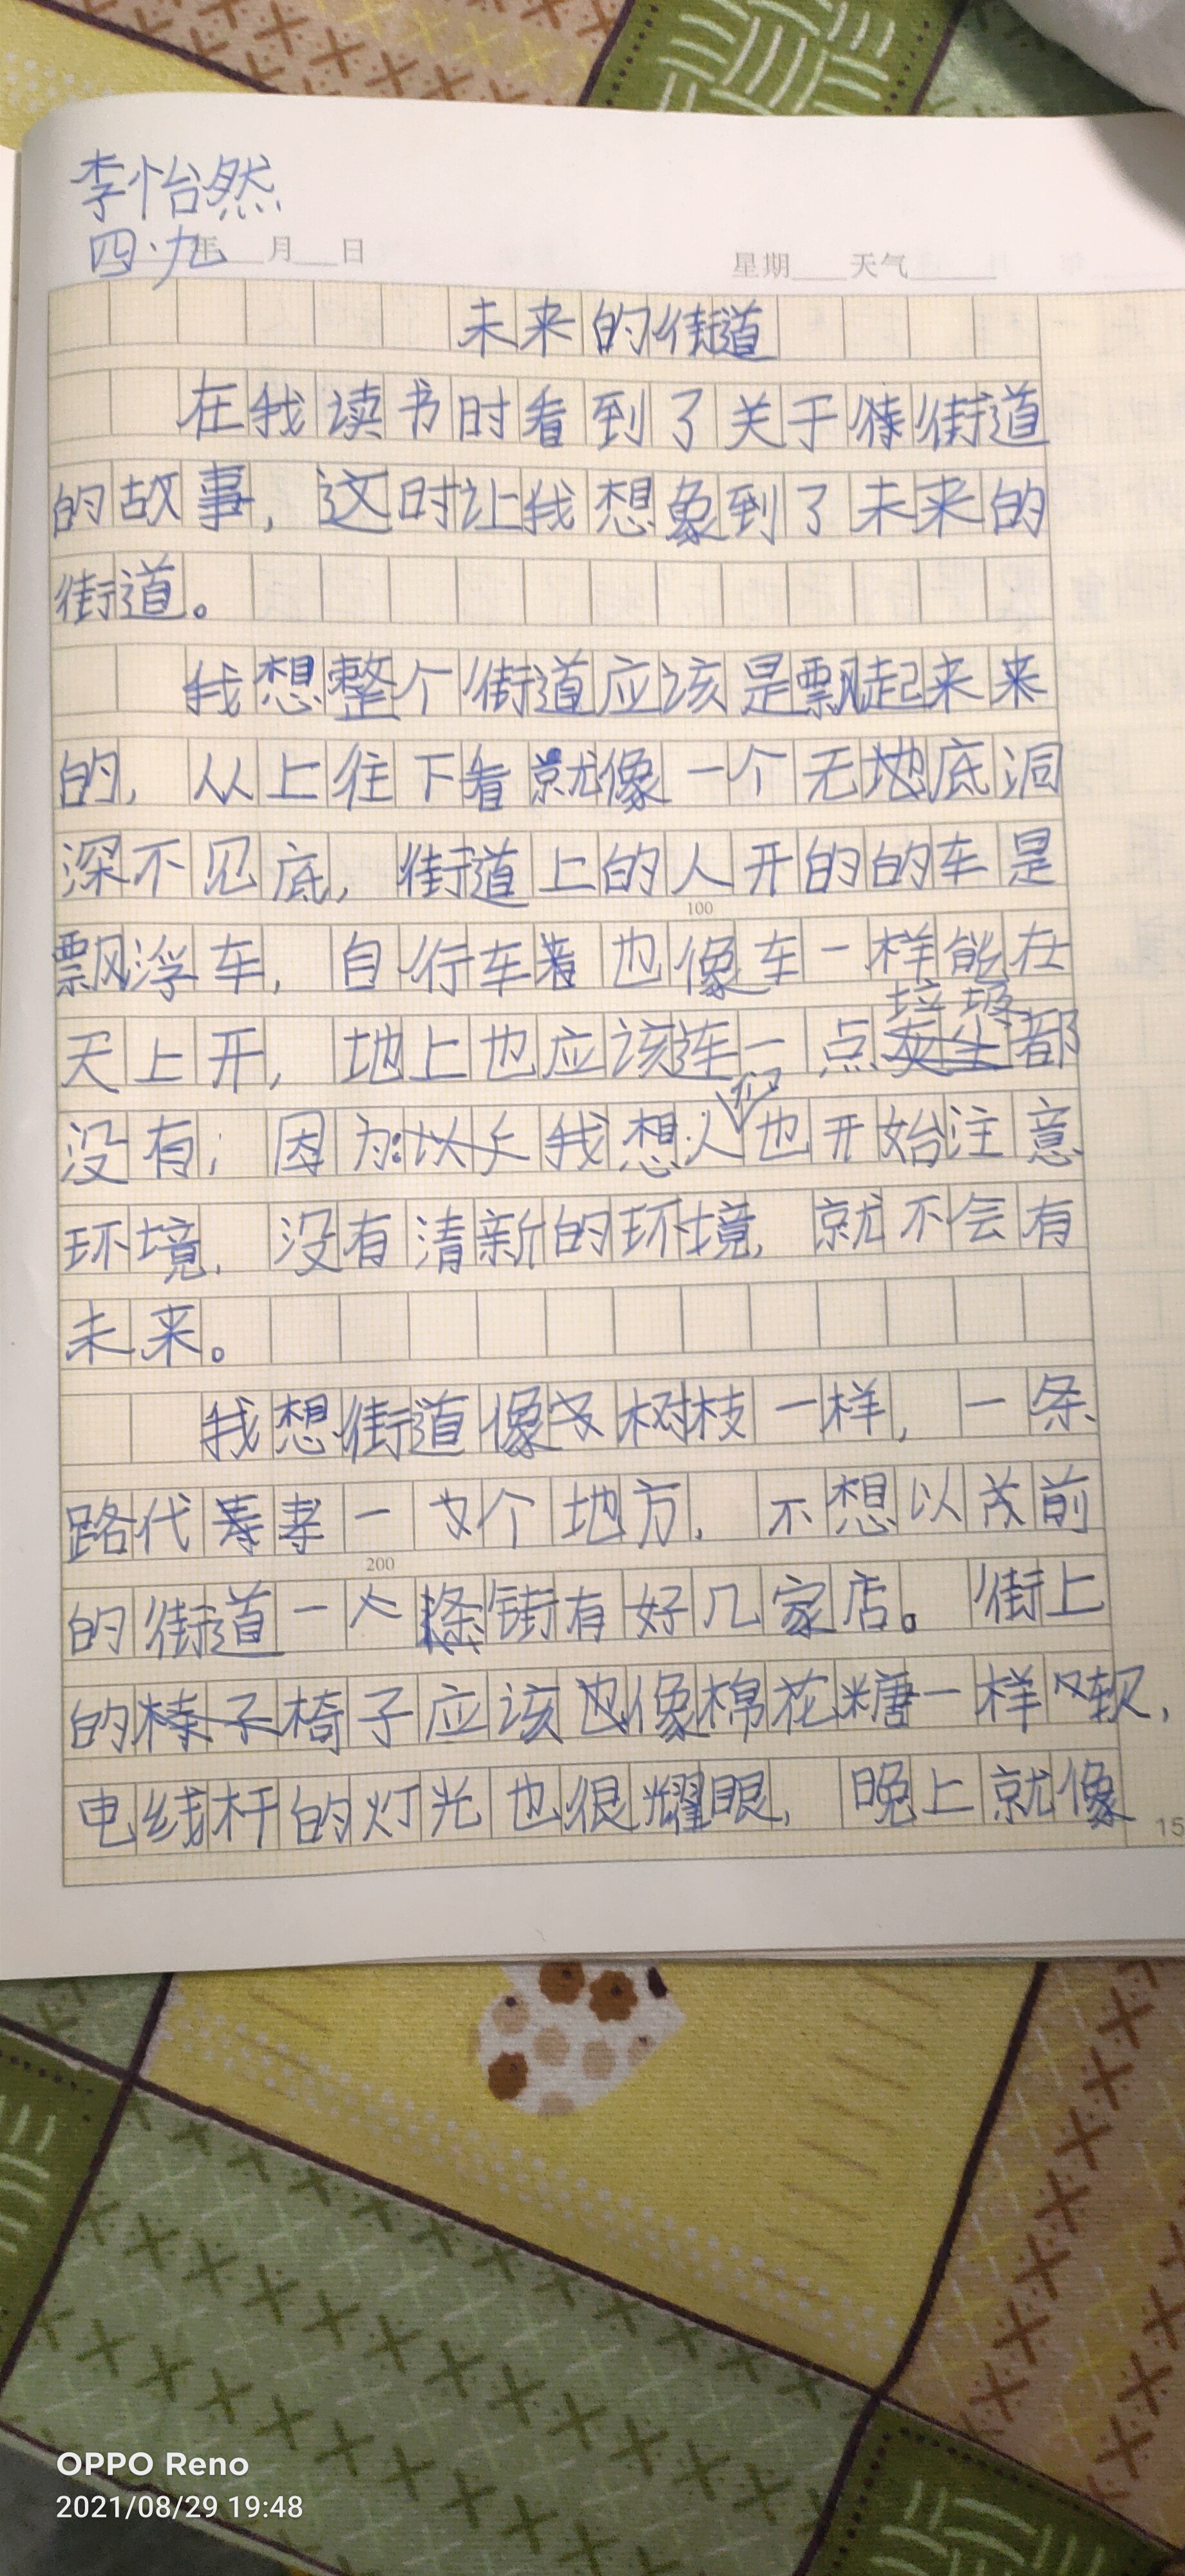 李怡然
四·九 年 月 日
星期 天气
未来的街道
在我读书时看到了关于街道
的故事，这时让我想象到了未来的
街道。
我想整个街道应该是飘起来来
的，从上往下看就像一个无地底洞
深不见底，街道上的人开的的车是
100
飘浮车，自行车着也像车一样能在
天上开，地上也应该连一点都
没有；因为我想人们也开始注意
环境，没有清新的环境，就不会有
未来。
我想街道像树枝一样，一条
路代一个地方，不想以前
200
的街道一条街有好几家店。街上
的椅子应该也像棉花糖一样软，
电线杆的灯光也很耀眼，晚上就像
15
OPPO Reno
2021/08/29 19:48